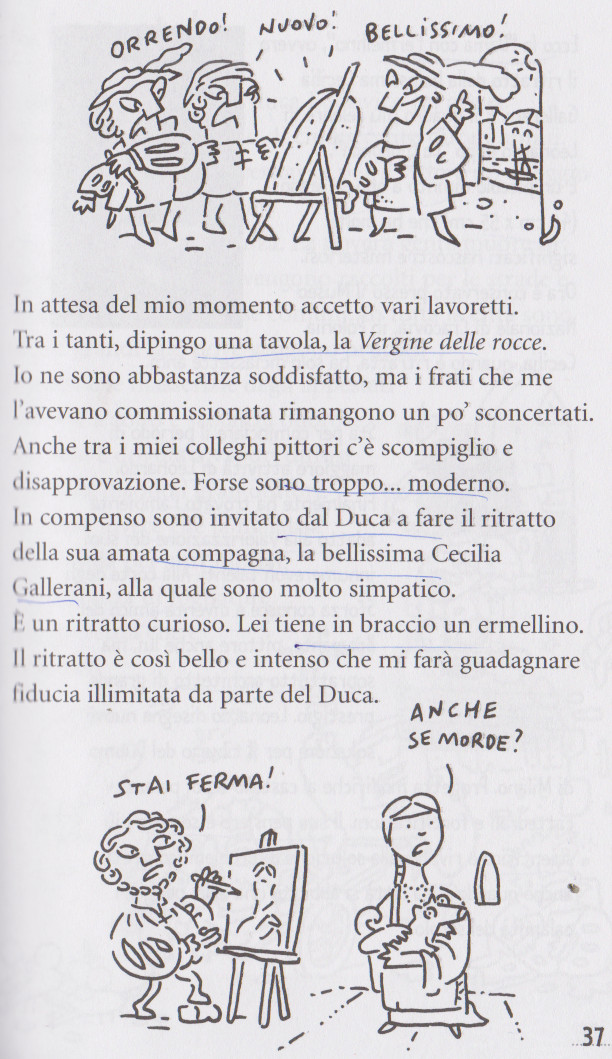 ORRENDO! NUOVO! BELLISSIMO!
In attesa del mio momento accetto vari lavoretti.
Tra i tanti, dipingo una tavola, la Vergine delle rocce.
Io ne sono abbastanza soddisfatto, ma i frati che me
l'avevano commissionata rimangono un po' sconcertati.
Anche tra i miei colleghi pittori c'è scompiglio e
disapprovazione. Forse sono troppo... moderno.
In compenso sono invitato dal Duca a fare il ritratto
della sua amata compagna, la bellissima Cecilia
Gallerani, alla quale sono molto simpatico.
È un ritratto curioso. Lei tiene in braccio un ermellino.
Il ritratto è così bello e intenso che mi farà guadagnare
fiducia illimitata da parte del Duca.
ANCHE
SE MORDE?
STAI FERMA!
37